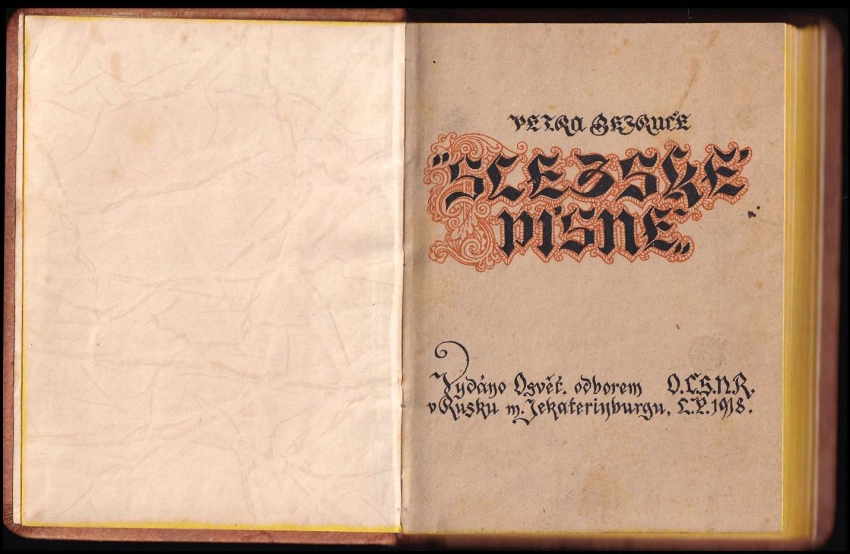 PETRA BEZRUČE
"SLEZSKÉ
PÍSNĚ„
Vydáno Osvět. odborem O.Č.S.N.R.
v Rusku m. Jekaterinburgu, L.P. 1918.